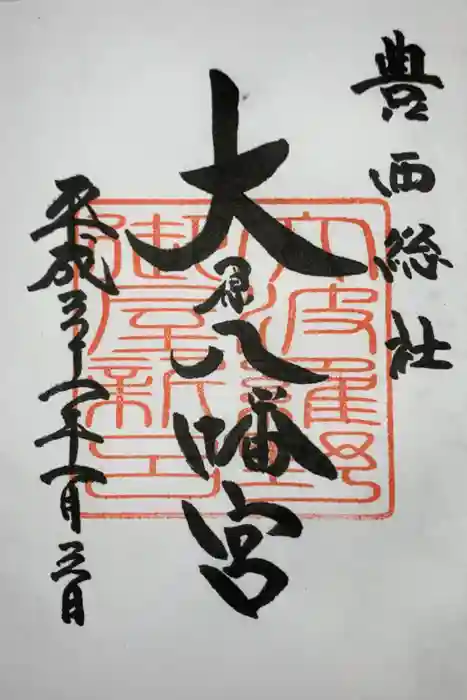 豊西総社
大原八幡宮
平成三十一年一月三日